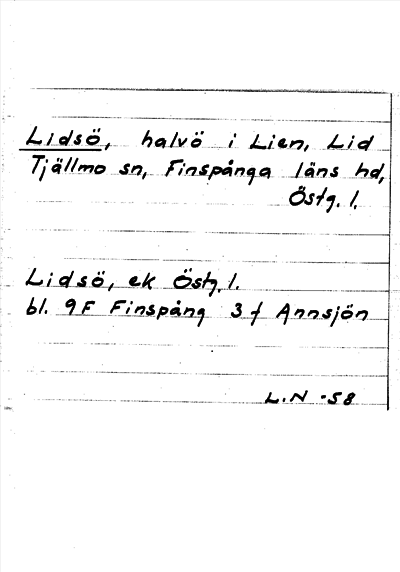 Lidsö, halvö i Lien, Lid
Tjällmo sn, Finspånga läns hd,
Östg. l.
Lidsö, ek Östg. l.
bl. 9F Finspång 3 f Annsjön
L.N -58